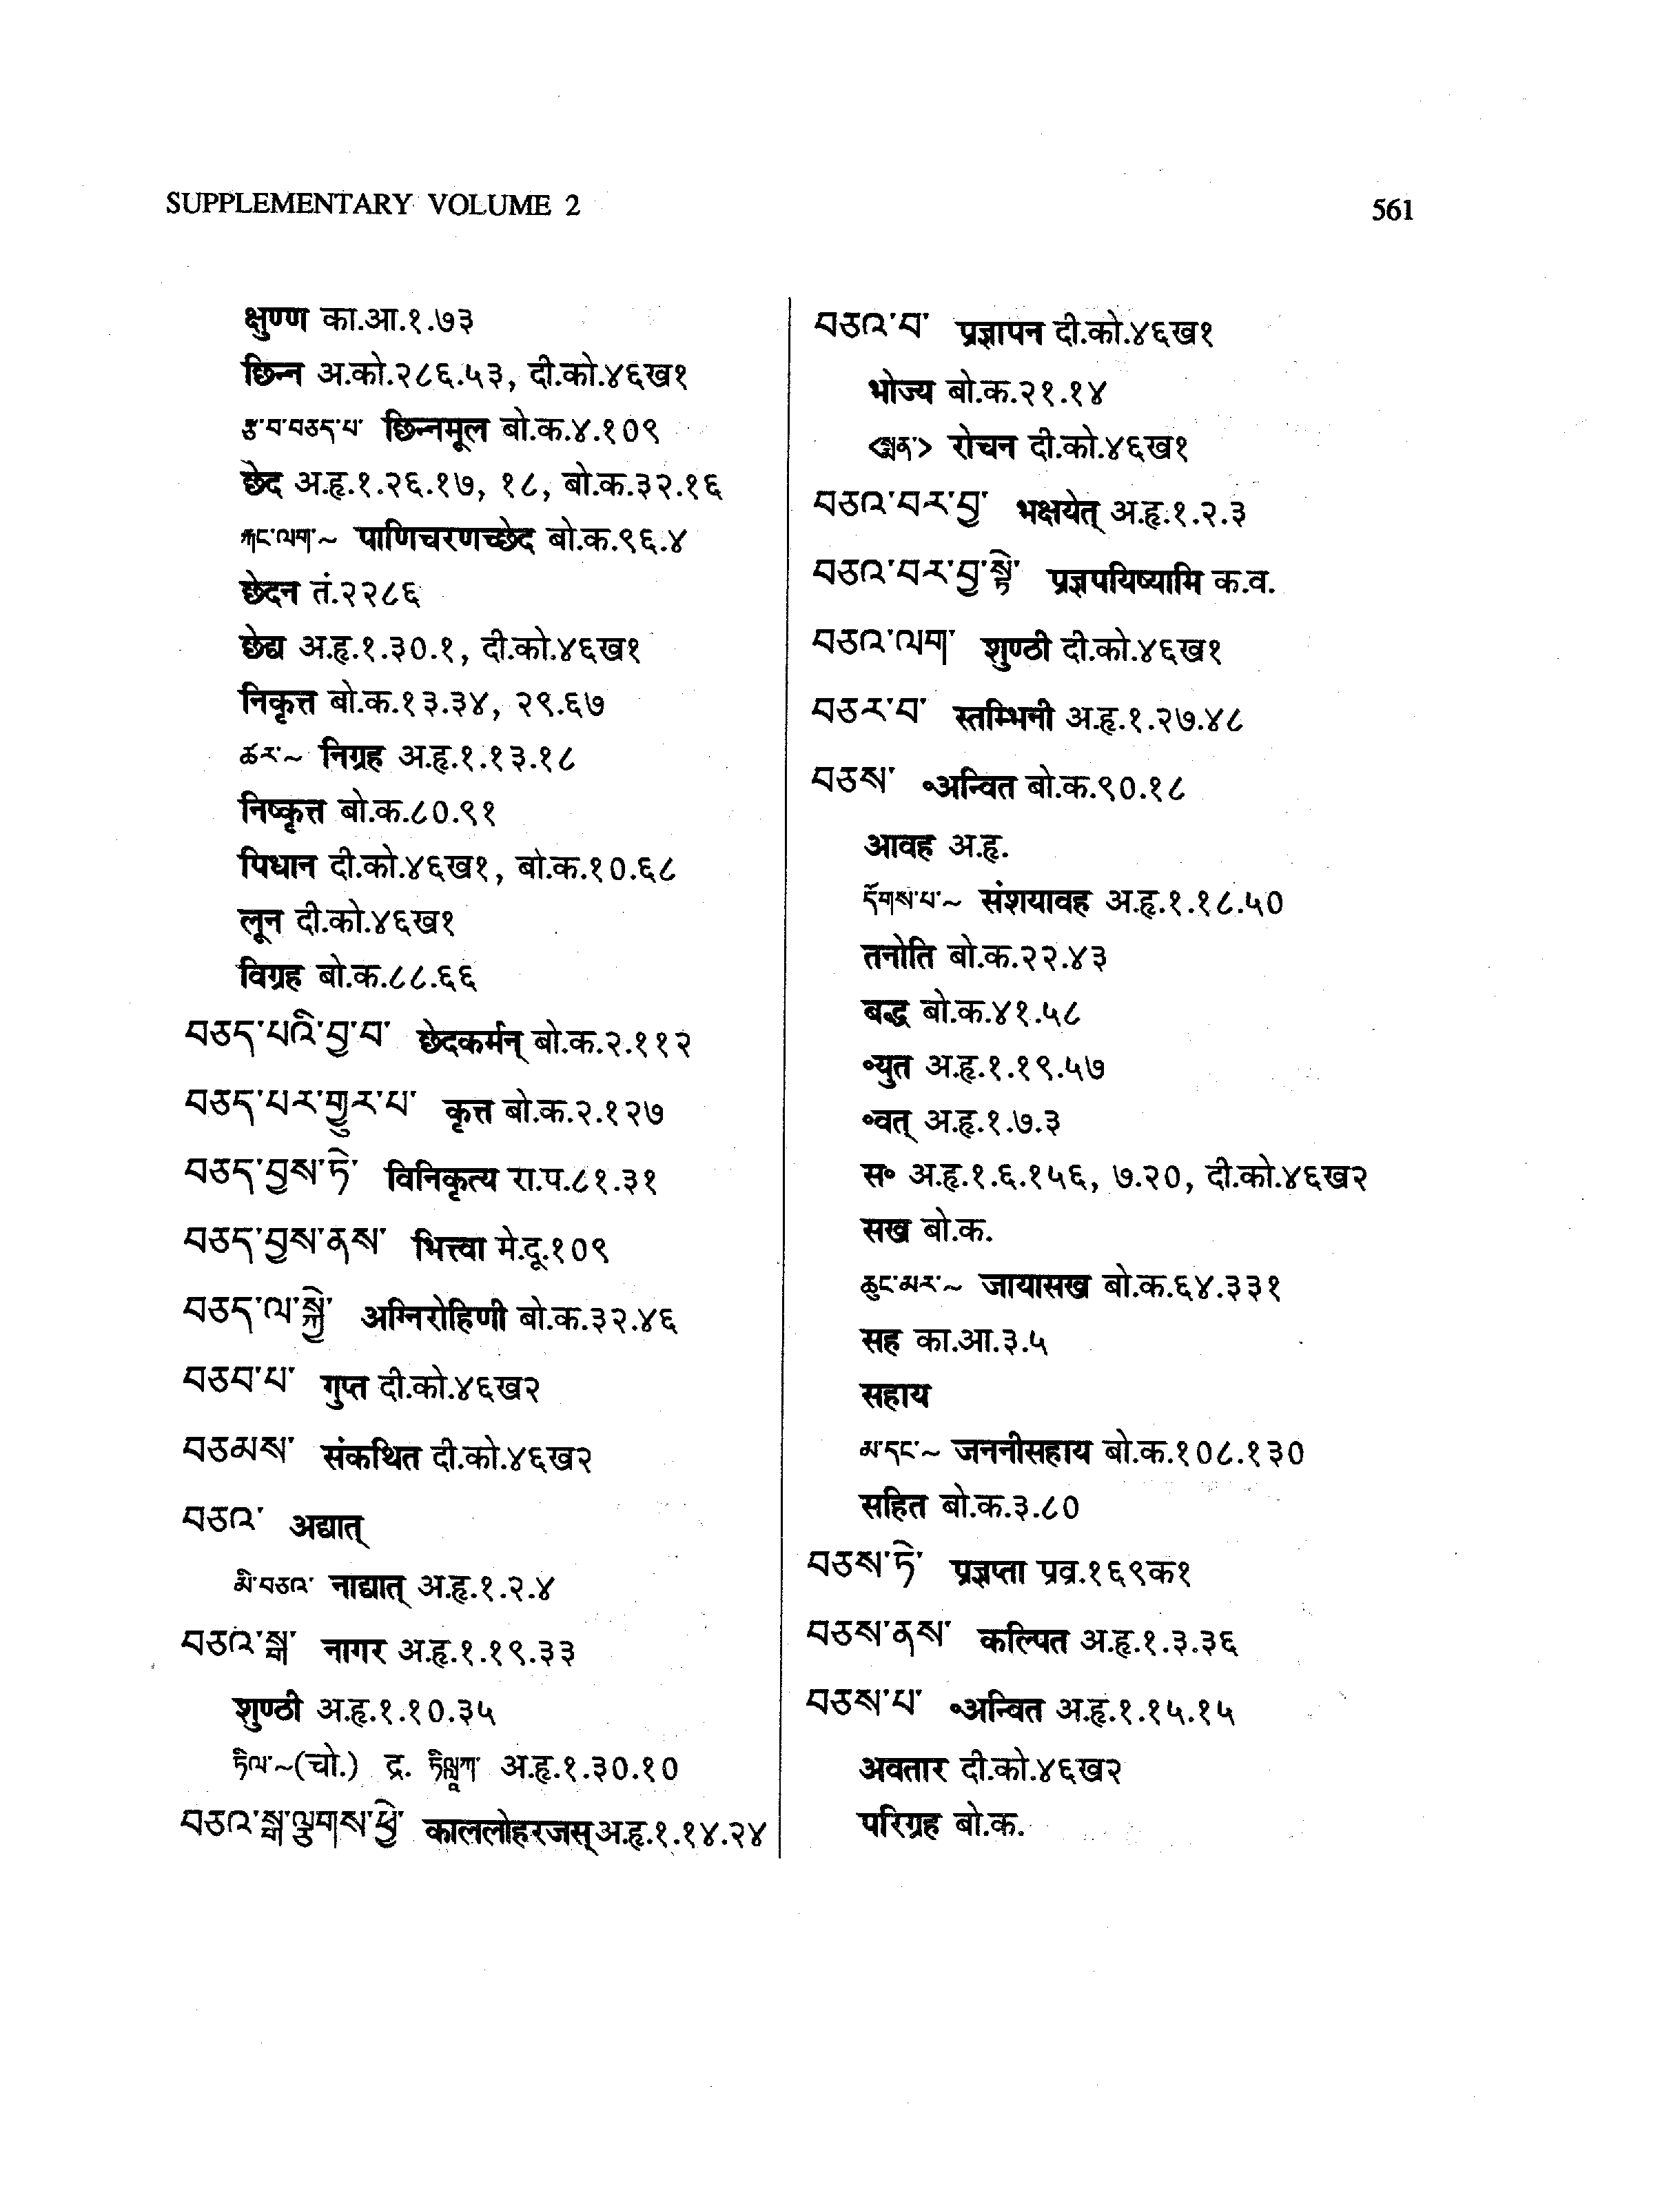 SUPPLEMENTARY VOLUME 2
561
क्षुण्ण का.आ.१.७३
छिन्न अ.को.२८६.५३, दी.को.४६ख१
རྩ་བ་བཅད་པ་ छिन्नमूल बो.क.४.१०९
छेद अ.हृ.१.२६.१७, १८, बो.क.३२.१६
རྐང་ལག་~ पाणिचरणच्छेद बो.क.९६.४
छेदन तं.२२८६
छेद्य अ.हृ.१.३०.१, दी.को.४६ख१
निकृत्त बो.क.१३.३४, २९.६७
ཚར་~ निग्रह अ.हृ.१.१३.१८
निष्कृत्त बो.क.८०.९१
पिधान दी.को.४६ख१, बो.क.१०.६८
लून दी.को.४६ख१
विग्रह बो.क.८८.६६
བཅད་པའི་བྱ་བ་ छेदकर्मन् बो.क.२.११२
བཅད་པར་གྱུར་པ་ कृत्त बो.क.२.१२७
བཅད་བྱས་ཏེ་ विनिकृत्य रा.प.८१.३१
བཅད་བྱས་ནས་ भित्त्वा मे.दू.१०९
བཅད་ལ་སྐྱེ་ अग्निरोहिणी बो.क.३२.४६
བཅབ་པ་ गुप्त दी.को.४६ख२
བཅམས་ संकथित दी.को.४६ख२
བཅའ་ अद्यात्
མི་བཅའ་ नाद्यात् अ.हृ.१.२.४
བཅའ་སྒ་ नागर अ.हृ.१.१९.३३
शुण्ठी अ.हृ.१.१०.३५
ཏིལ་~(चो.) द्र. अ.हृ.१.३०.१०
བཅའ་སྒ་ལྕགས་ཕྱེ་ काललोहरजस् अ.हृ.१.१४.२४
བཅའ་བ་ प्रज्ञापन दी.को.४६ख१
भोज्य बो.क.२१.१४
<སྨན་> रोचन दी.को.४६ख१
བཅའ་བར་བྱ་ भक्षयेत् अ.हृ.१.२.३
བཅའ་བར་བྱ་སྟེ་ प्रज्ञपयिष्यामि क.व.
བཅའ་ལག་ शुण्ठी दी.को.४६ख१
བཅར་བ་ स्तम्भिनी अ.हृ.१.२७.४८
བཅས་ ॰अन्वित बो.क.९०.१८
आवह अ.हृ.
དོགས་པ་~ संशयावह अ.हृ.१.१८.५०
तनोति बो.क.२२.४३
बद्ध बो.क.४१.५८
॰युत अ.हृ.१.१९.५७
॰वत् अ.हृ.१.७.३
स॰ अ.हृ.१.६.१५६, ७.२०, दी.को.४६ख२
सख बो.क.
ཆུང་མར་~ जायासख बो.क.६४.३३१
सह का.आ.३.५
सहाय
མ་དང་~ जननीसहाय बो.क.१०८.१३०
सहित बो.क.३.८०
བཅས་ཏེ་ प्रज्ञप्ता प्रव्र.१६९क१
བཅས་ནས་ कल्पित अ.हृ.१.३.३६
བཅས་པ་ ॰अन्वित अ.हृ.१.१५.१५
अवतार दी.को.४६ख२
परिग्रह बो.क.